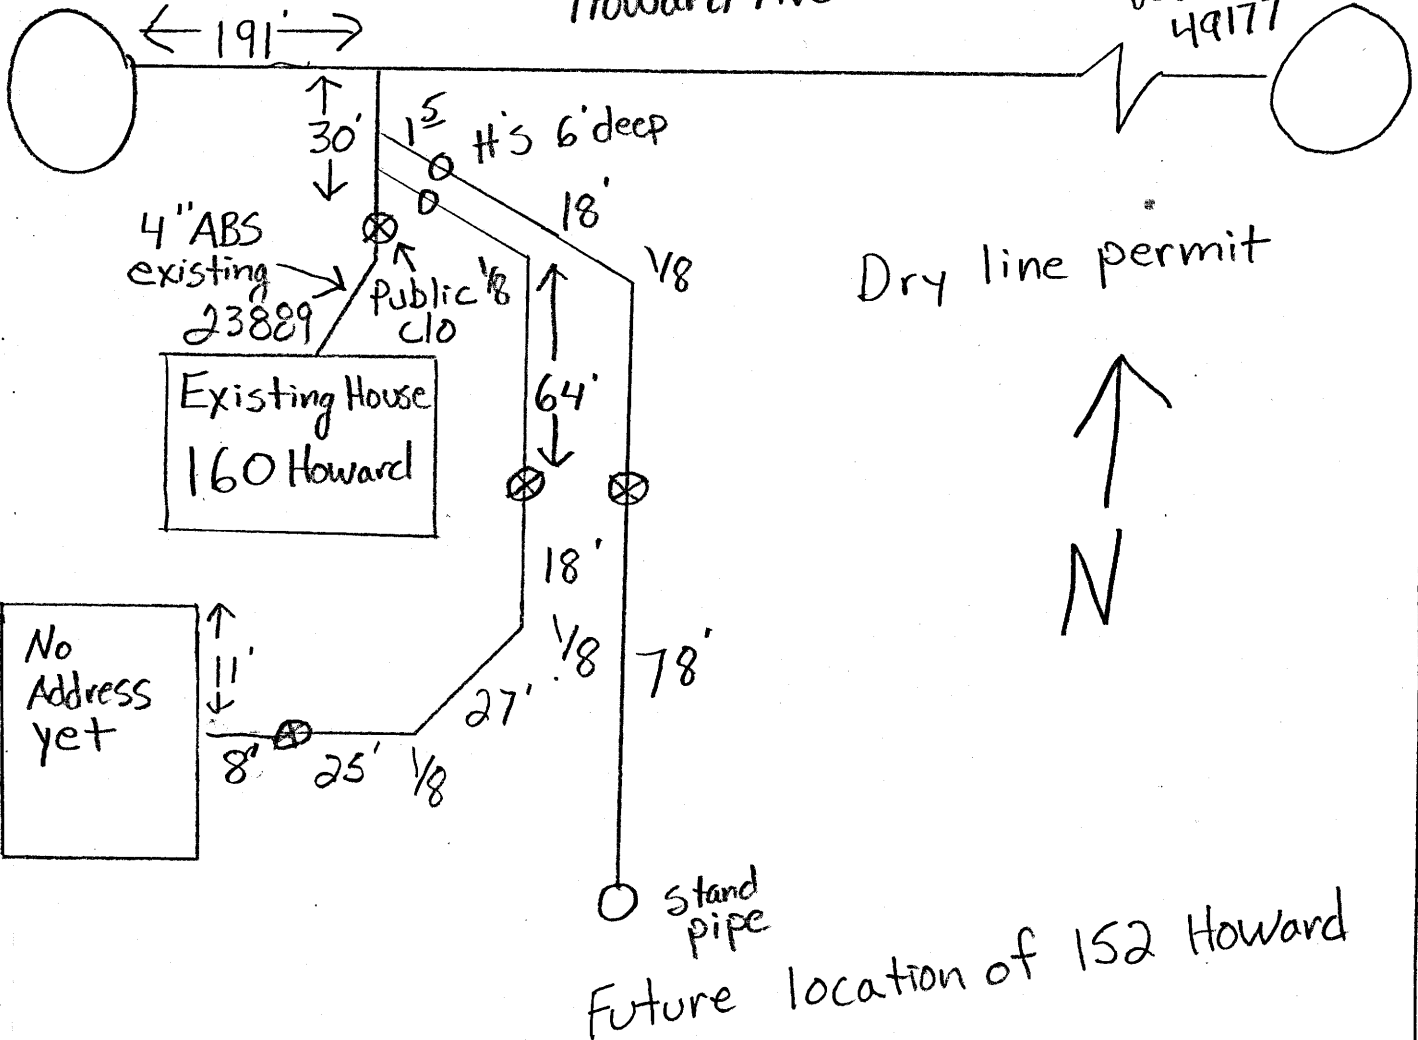 Howard Ave
191'
49177
30'
1 5
H's 6' deep
18'
1/8
4" ABS
existing
23889
Public
c/o
1/8
64'
Dry line permit
Existing House
160 Howard
N
18'
1/8
78'
27'
No
Address
yet
11'
8'
25'
1/8
Stand
pipe
Future location of 152 Howard